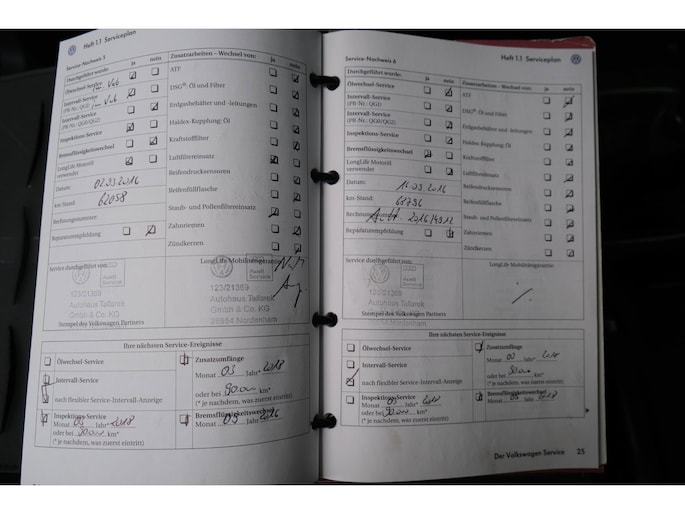 Heft 1.1 Serviceplan
Service-Nachweis 5
Durchgeführt wurde: ja nein
Ölwechsel-Service
Intervall-Service
(PR-Nr.: QG1)
Intervall-Service
(PR-Nr.: QG0/QG2)
Inspektions-Service
Bremsflüssigkeitswechsel
LongLife Motoröl
verwendet
Datum: 02.03.2016
km-Stand: 62058
Rechnungsnummer:
Reparaturempfehlung
Service durchgeführt von:
123/21369
Autohaus Tallarek
Gmbh & Co. KG
Stempel des Volkswagen Partners
Zusatzarbeiten – Wechsel von: ja nein
ATF
DSG®: Öl und Filter
Erdgasbehälter und -leitungen
Haldex-Kupplung: Öl
Kraftstofffilter
Luftfiltereinsatz
Reifendrucksensoren
Reifenfüllflasche
Staub- und Pollenfiltereinsatz
Zahnriemen
Zündkerzen
LongLife Mobilitätsgarantie
Audi
Service
123/21369
Autohaus Tallarek
Gmbh & Co. KG
26954 Nordenham
Ihre nächsten Service-Ereignisse
Ölwechsel-Service
Intervall-Service
nach flexibler Service-Intervall-Anzeige
Inspektions-Service
Monat 03 Jahr* 2018
oder bei 90.000 km*
(* je nachdem, was zuerst eintritt)
Zusatzumfänge
Monat 03 Jahr* 2018
oder bei 90.000 km*
(* je nachdem, was zuerst eintritt)
Bremsflüssigkeitswechsel
Monat 03 Jahr 2016
Service-Nachweis 6
Heft 1.1 Serviceplan
Durchgeführt wurde: ja nein
Ölwechsel-Service
Intervall-Service
(PR-Nr.: QG1)
Intervall-Service
(PR-Nr.: QG0/QG2)
Inspektions-Service
Bremsflüssigkeitswechsel
LongLife Motoröl
verwendet
Datum: 16.03.2016
km-Stand:
Rechnungsnummer:
Reparaturempfehlung
Service durchgeführt von:
123/21369
Autohaus Tallarek
Gmbh & Co. KG
Nordenham
Stempel des Volkswagen Partners
Zusatzarbeiten – Wechsel von: ja nein
ATF
DSG®: Öl und Filter
Erdgasbehälter und -leitungen
Haldex-Kupplung: Öl
Kraftstofffilter
Luftfiltereinsatz
Reifendrucksensoren
Reifenfüllflasche
Staub- und Pollenfiltereinsatz
Zahnriemen
Zündkerzen
LongLife Mobilitätsgarantie
Ihre nächsten Service-Ereignisse
Ölwechsel-Service
Intervall-Service
nach flexibler Service-Intervall-Anzeige
Inspektions-Service
Monat 03 Jahr* 2018
oder bei 90.000 km*
(* je nachdem, was zuerst eintritt)
Zusatzumfänge
Monat 03 Jahr* 2018
oder bei 90.000 km*
(* je nachdem, was zuerst eintritt)
Bremsflüssigkeitswechsel
Monat 03 Jahr 2018
Der Volkswagen Service 25